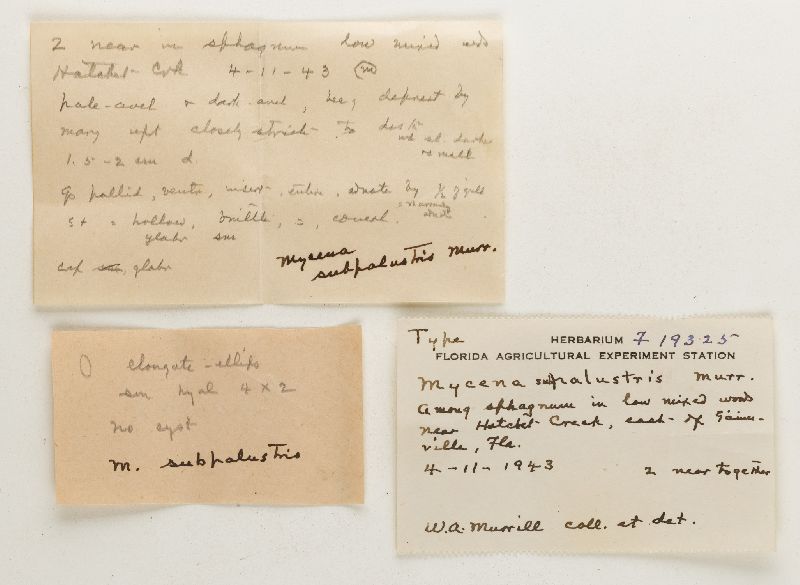 2 near in sphagnum low mixed wds
Hatchet Crk 4-11-43 (m)
pale-avel & dark-avel, disk depressed by
many upt closely striate to disk
wh sl. darker
& small
1.5-2 cm d.
gs pallid, ventr, insert, entire, adnate by 1/2 of gills
= narrowly
adnate
st = hollow, brittle, =, concol.
glabr sm
cap glabr
Mycena
subpalustris Murr.
elongate-ellips
sm hyal 4 x 2
no cyst
M. subpalustris
Type
HERBARIUM F 19325
FLORIDA AGRICULTURAL EXPERIMENT STATION
Mycena subpalustris Murr.
Among sphagnum in low mixed woods
near Hatchet Creek, east of Gaines-
ville, Fla.
4-11-1943 2 near together
W.A. Murrill coll. et det.